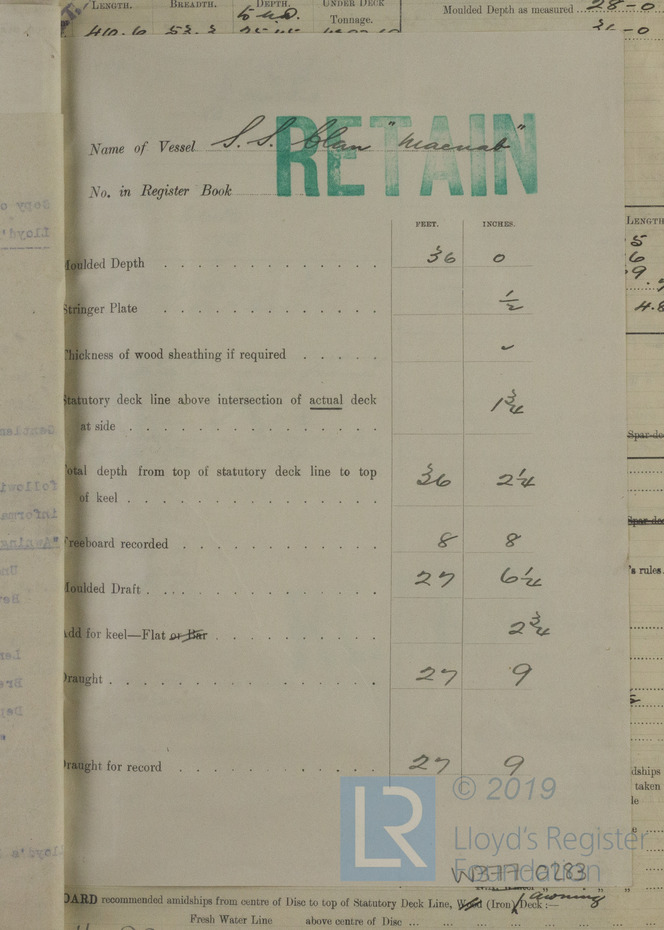 LENGTH. BREADTH. DEPTH. UNDER DECK Tonnage.
Moulded Depth as measured 28-0
410.6 53.3
RETAIN
Name of Vessel S.S. Clan "Macnab"
No. in Register Book
FEET. INCHES.
Moulded Depth 36 0
Stringer Plate 1/2
Thickness of wood sheathing if required ✓
Statutory deck line above intersection of actual deck
at side 1 3/4
Total depth from top of statutory deck line to top
of keel 36 2 1/4
Freeboard recorded 8 8
Moulded Draft 27 6 1/4
Add for keel—Flat or Bar 2 3/4
Draught 27 9
Draught for record 27 9
LR © 2019
Lloyd's Register
Foundation
W377-0283
LENGTH
5
6
9
4.8
Spar-dec
Spar-dec
's rules.
dships
taken
le
OARD recommended amidships from centre of Disc to top of Statutory Deck Line, Wood (Iron) Awning Deck :—
Fresh Water Line above centre of Disc